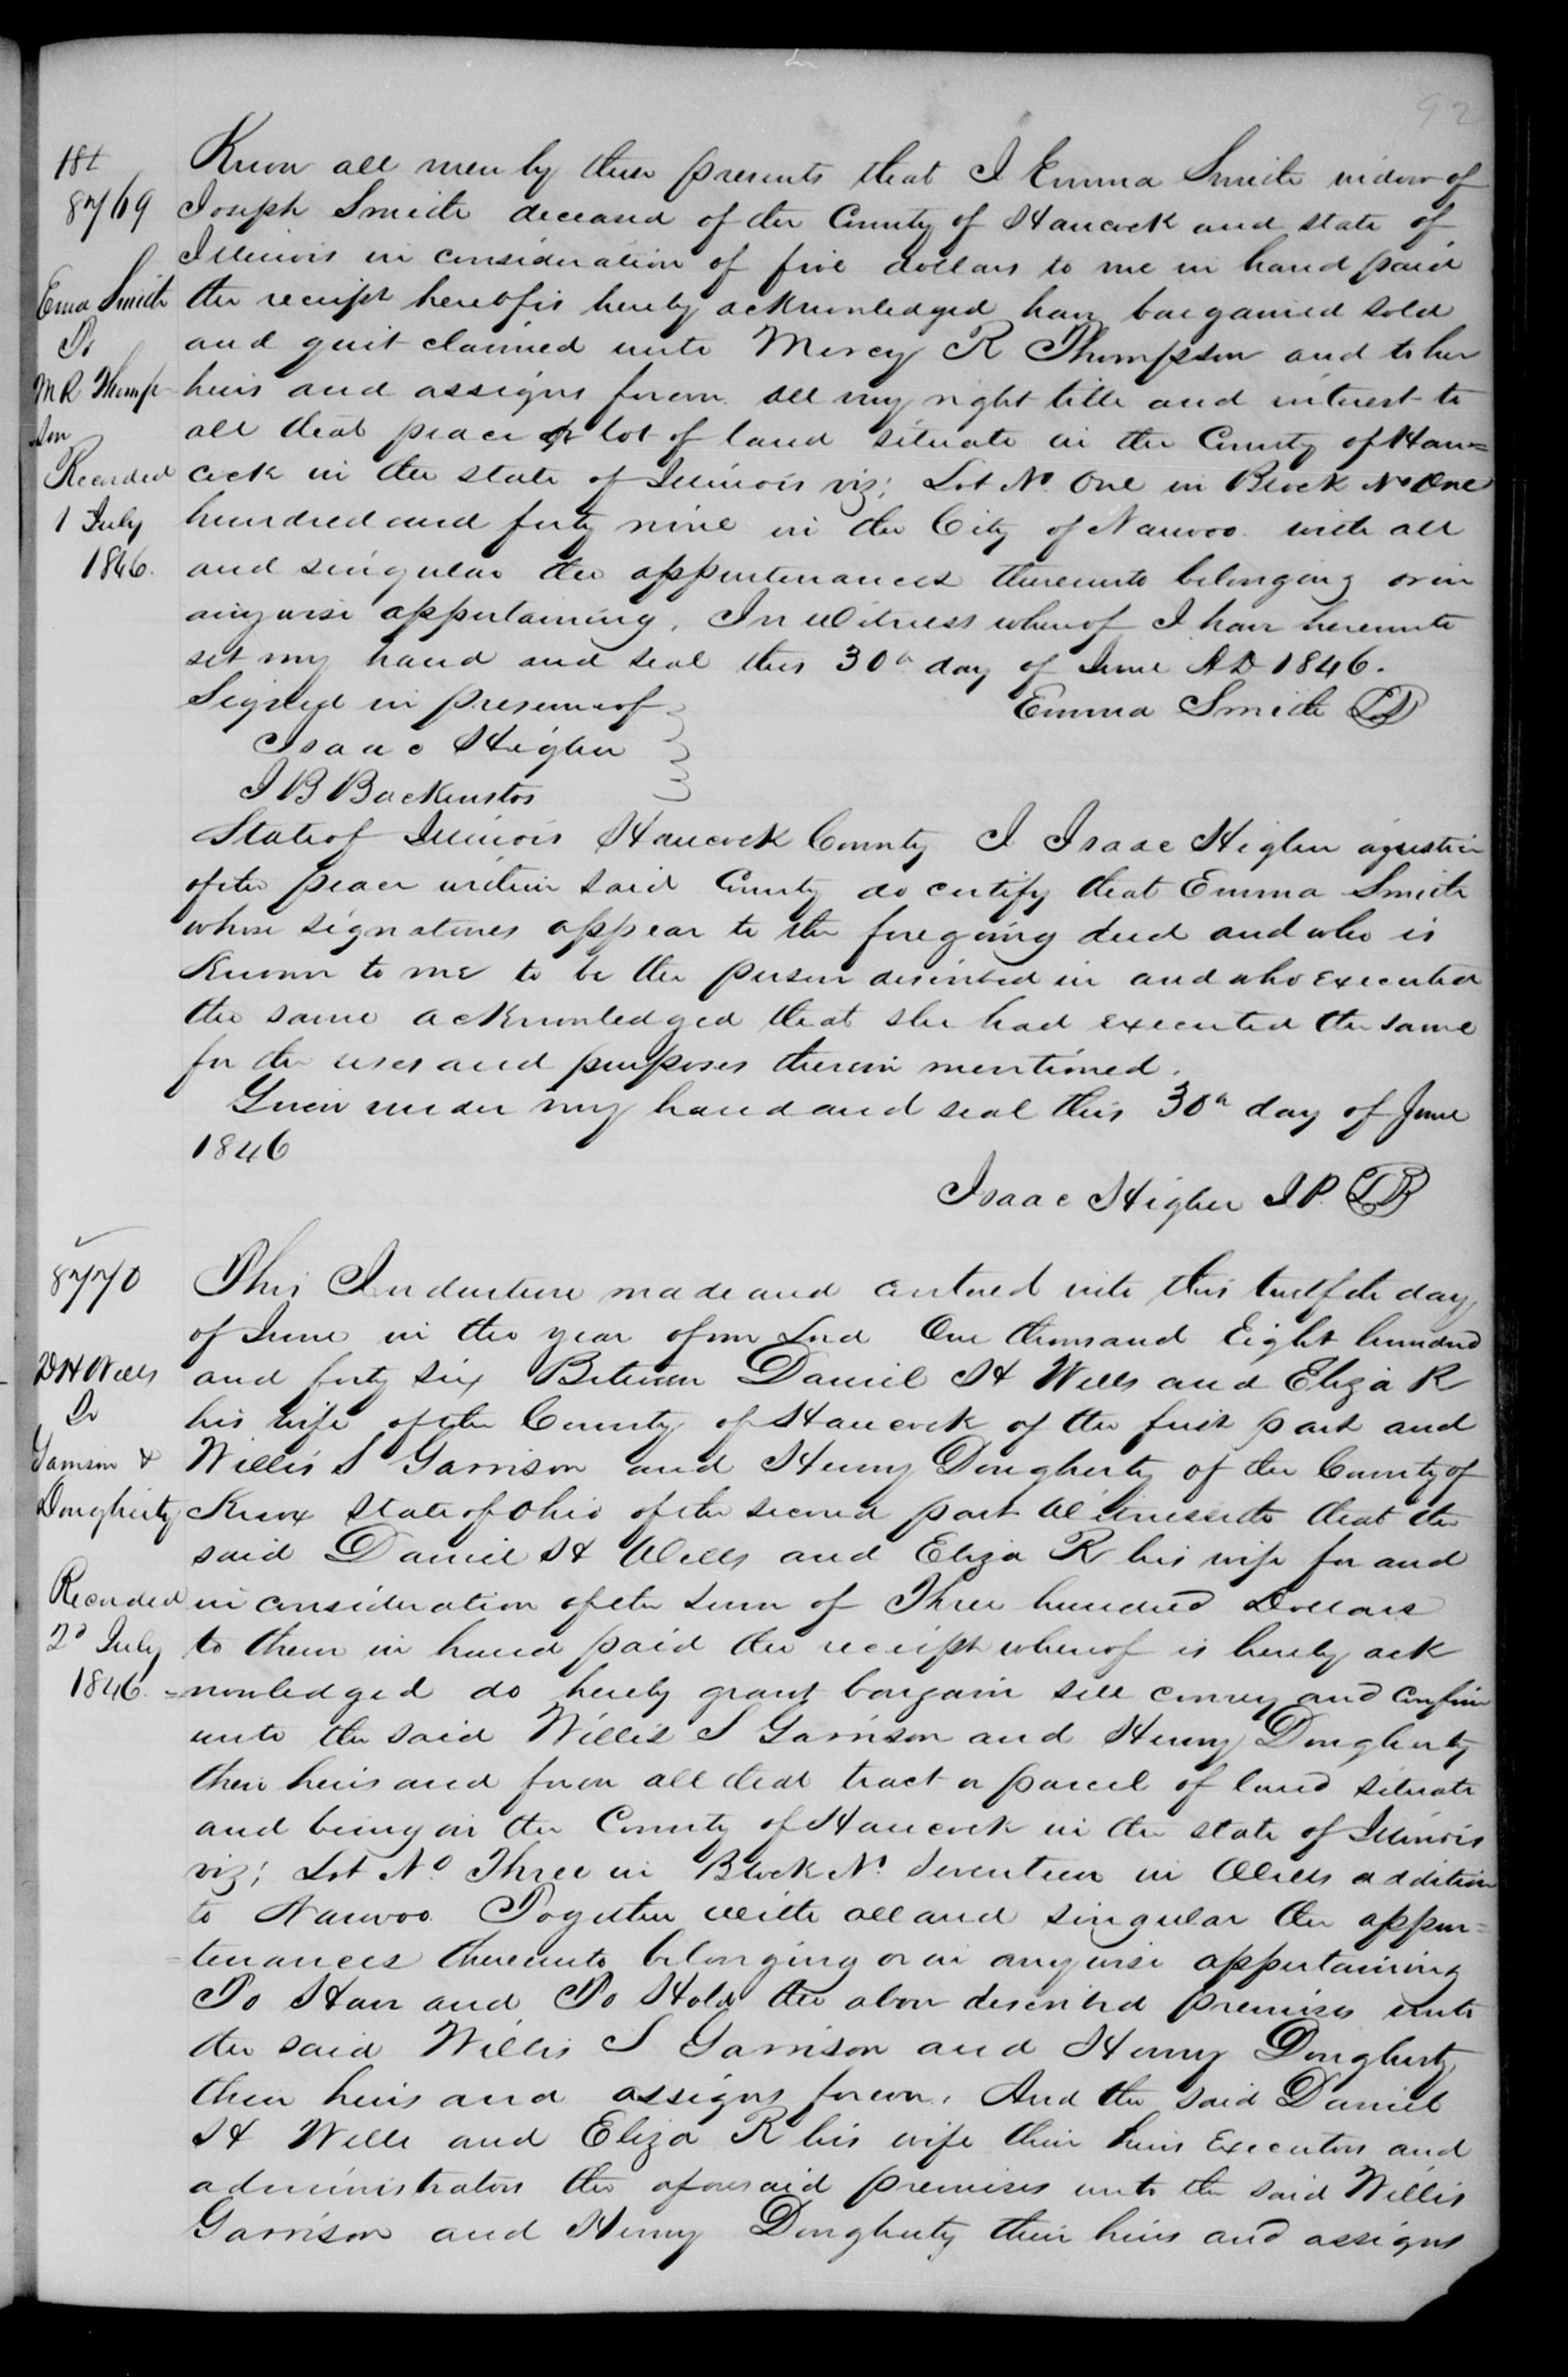 92
18t
8769
Emma Smith
To
M R Thomp
son
Recorded
1 July
1846.
Know all men by these presents that I Emma Smith widow of
Joseph Smith deceased of the County of Hancock and state of
Illinois in consideration of five dollars to me in hand paid
the receipt hereof is hereby acknowledged have bargained sold
and quit claimed unto Mercy R Thompson and to her
heirs and assigns forever all my right title and interest to
all that peace or lot of land situate in the County of Han=
cock in the state of Illinois viz; Lot No. One in Block No One
hundred and forty nine in the City of Nauvoo with all
and singular the appurtenances thereunto belonging or in
anywise appertaining. In Witness whereof I have hereunto
set my hand and seal this 30th day of June AD 1846.
Signed in presence of
Emma Smith LS
Isaac Higbee
J B Backenstos
State of Illinois Hancock County I Isaac Higbee a justice
of the peace within said County do certify that Emma Smith
whose signatures appear to the foregoing deed and who is
Known to me to be the person described in and who executed
the same acknowledged that she had executed the same
for the uses and purposes therein mentioned.
Given under my hand and seal this 30th day of June
1846
Isaac Higbee J.P. LS
8770
D H Wells
To
Garrison &
Dougherty
Recorded
2d July
1846.
This Indenture made and entered into this twelfth day
of June in the year of our Lord One thousand Eight hundred
and forty six Between Daniel H Wells and Eliza R
his wife of the County of Hancock of the first part and
Willis S Garrison and Henry Dougherty of the County of
Knox State of Ohio of the second part Witnesseth that the
said Daniel H Wells and Eliza R his wife for and
in consideration of the sum of Three hundred Dollars
to them in hand paid the receipt whereof is hereby ack
=nowledged do hereby grant bargain sell convey and confirm
unto the said Willis S Garrison and Henry Dougherty
their heirs and forever all that tract or parcel of land situate
and being in the County of Hancock in the state of Illinois
viz; Lot No. Three in Block No. Seventeen in Wells addition
to Nauvoo Together with all and singular the appur=
=tenances thereunto belonging or in anywise appertaining
To Have and To Hold the above described premises unto
the said Willis S Garrison and Henry Dougherty
their heirs and assigns forever. And the said Daniel
H Wells and Eliza R his wife their heirs Executors and
administrators the aforesaid premises unto the said Willis
Garrison and Henry Dougherty their heirs and assigns